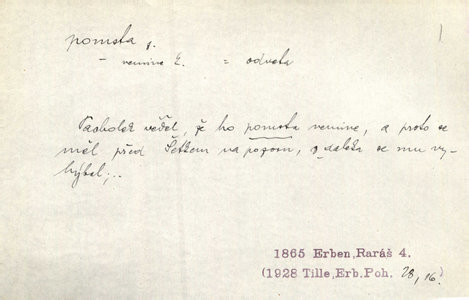 pomsta f.
– nemine č. = odveta
Pacholek věděl, že ho pomsta nemine, a proto se
měl před Šetkem na pozoru, z daleka se mu vy-
hýbal;..
1865 Erben, Raráš 4.
(1928 Tille, Erb. Poh. 28, 16)